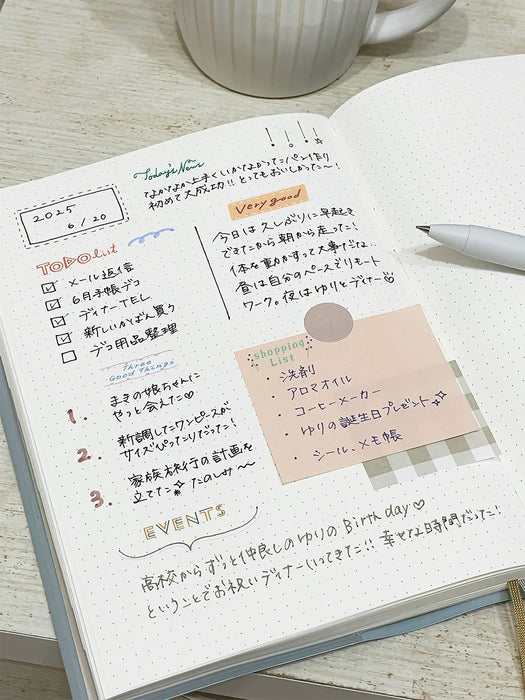 Today's News
なかなか上手くいかなかったパン作り
初めて大成功!! とってもおいしかった〜!
2025
6/20
TODO list
メール返信
6月手帳デコ
ディナーTEL
新しいかばん買う
デコ用品整理
Very good
今日は久しぶりに早起き
できたから朝から走った!
体を動かすって大事だな..
昼は自分のペースでリモート
ワーク。夜はゆりとディナー♡
Three
Good Things
1. まきの娘ちゃんに
やっと会えた♡
2. 新調したワンピースが
サイズぴったりだった!
3. 家族旅行の計画を
立てた たのしみ〜〜
shopping
List
・洗剤
・アロマオイル
・コーヒーメーカー
・ゆりの誕生日プレゼント
・シール、メモ帳
EVENTS
高校からずっと仲良しのゆりの Birthday♡
ということでお祝いディナーいってきた!! 幸せな2時間だった!